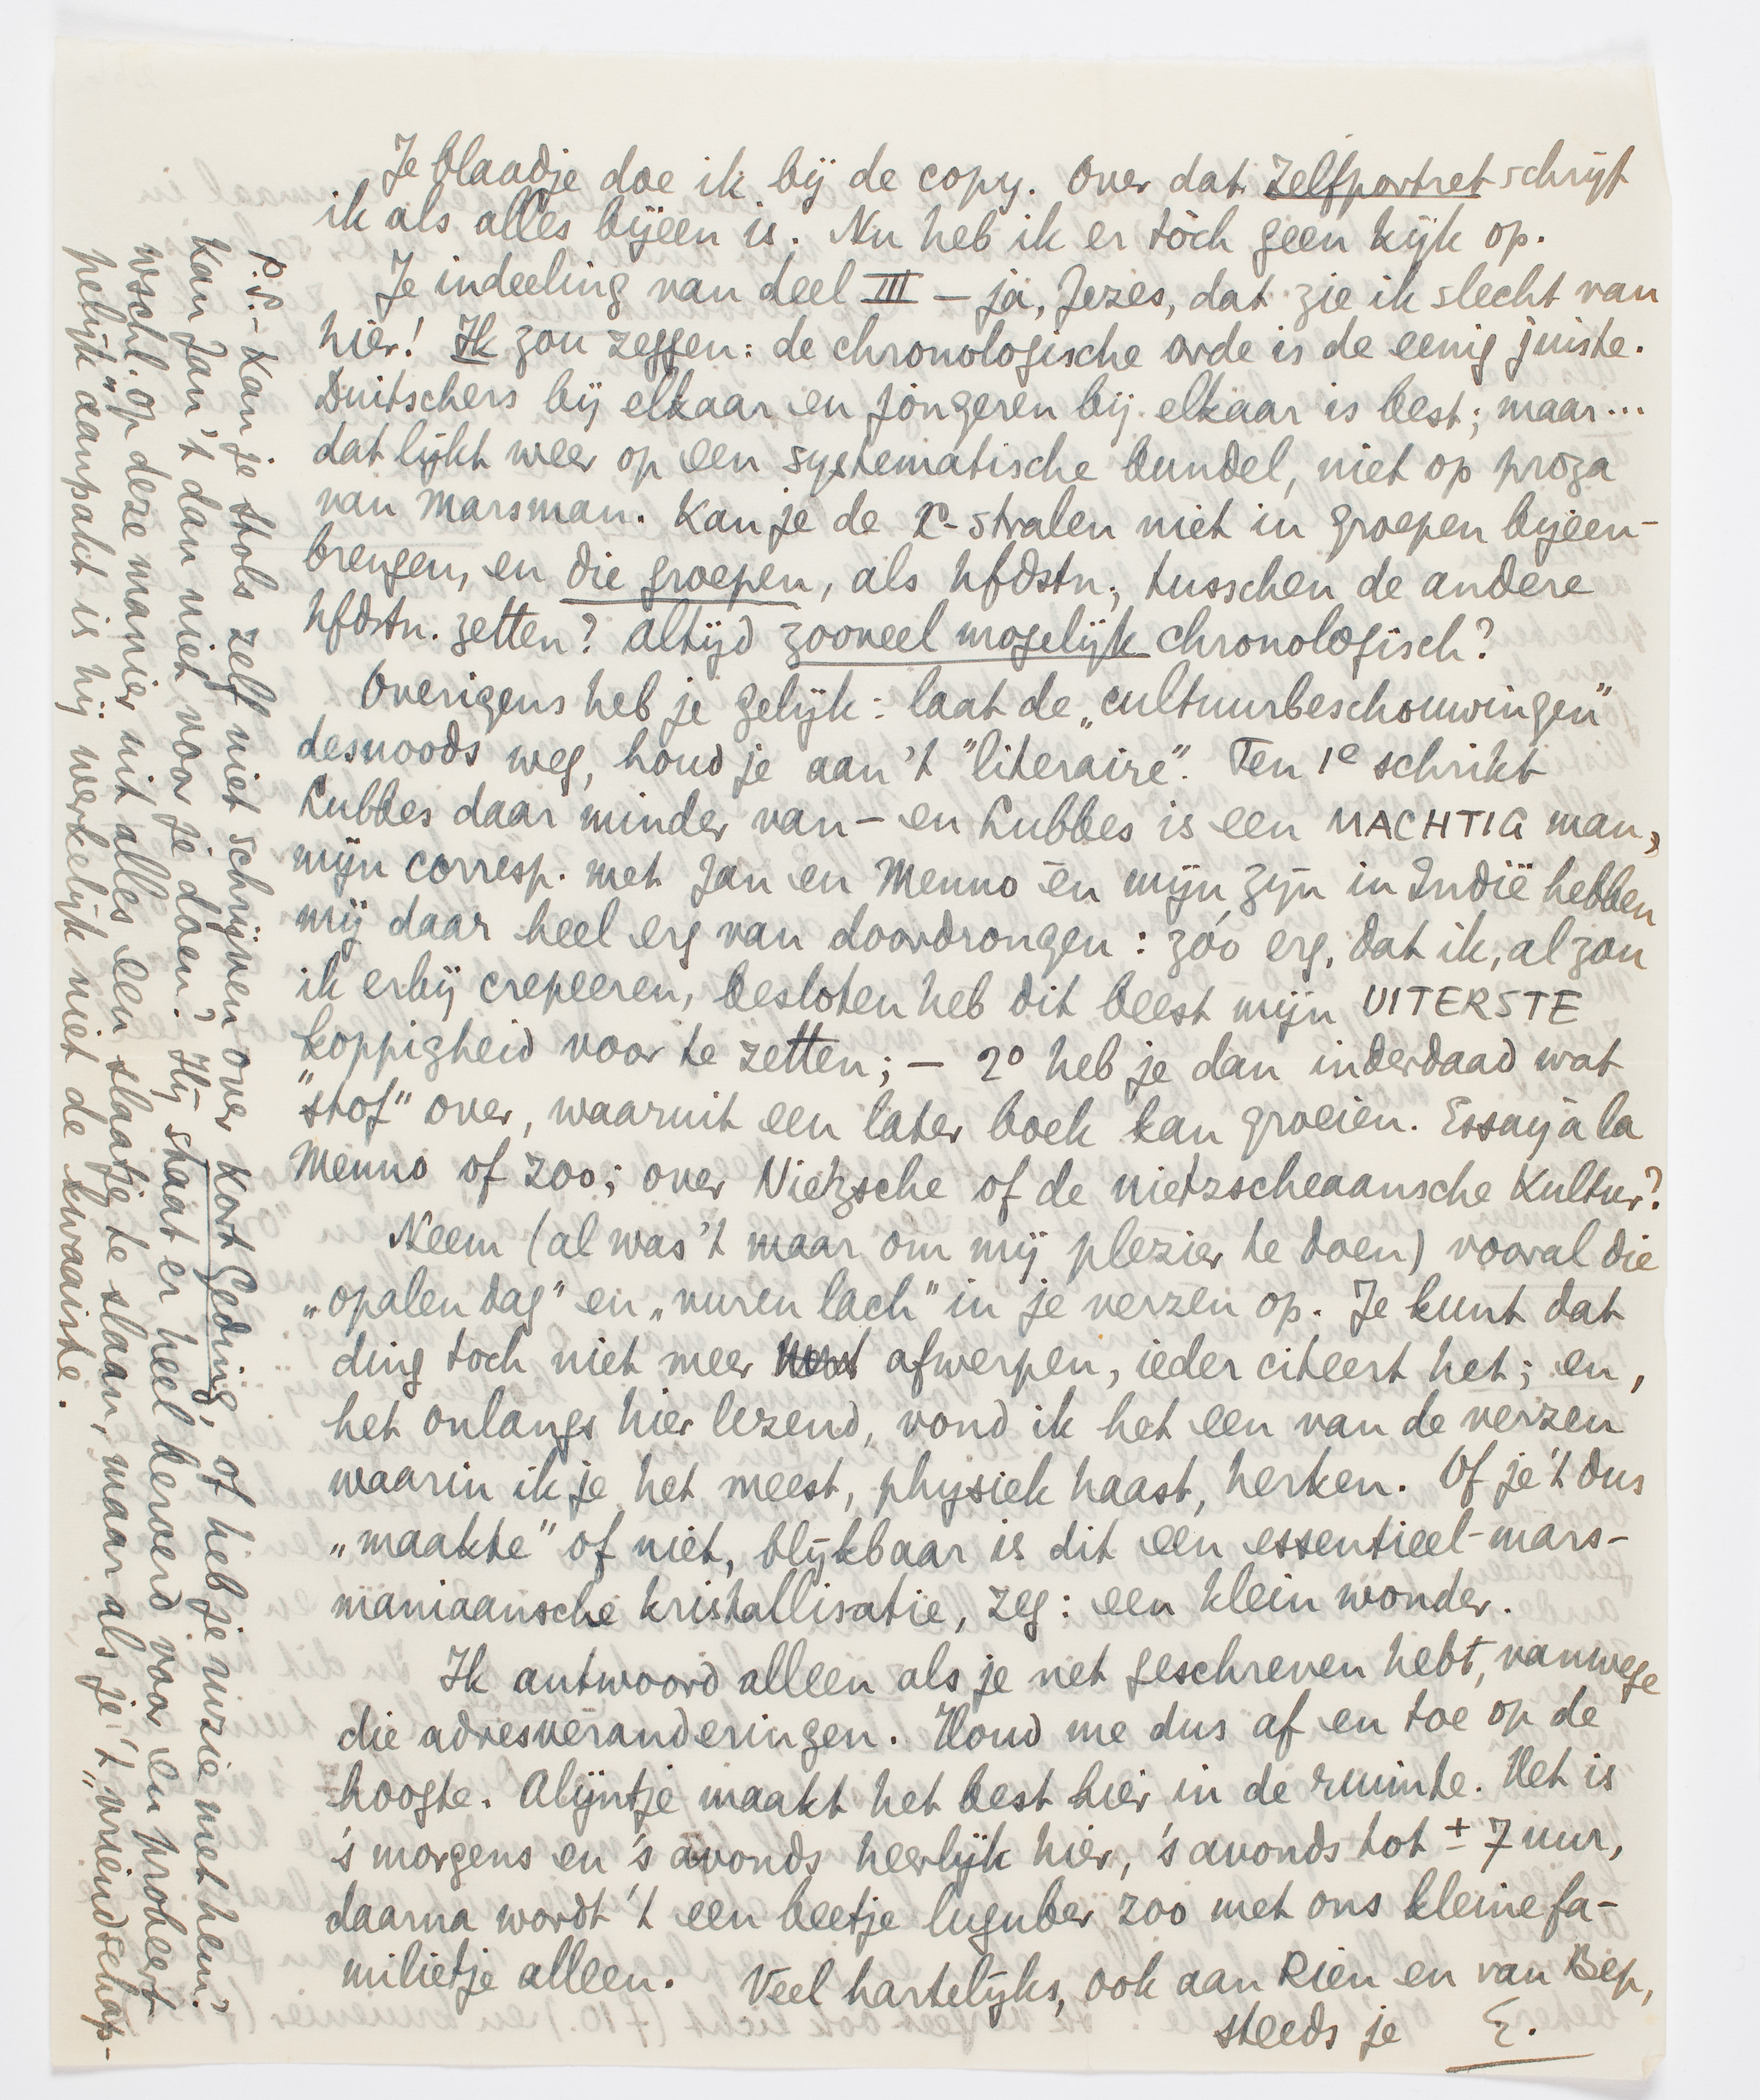 Je blaadje doe ik bij de copy. Over dat Zelfportret schrijf
ik als alles bijeen is. Nu heb ik er tòch geen kijk op.
Je indeeling van deel III – ja, Jezes, dat zie ik slecht van
hier! Ik zou zeggen: de chronologische orde is de eenig juiste.
Duitschers bij elkaar en jongeren bij elkaar is best; maar...
dat lijkt weer op een systematische bundel, niet op proza
van Marsman. Kan je de X-stralen niet in groepen bijeen-
brengen, en die groepen, als hfdstn, tusschen de andere
hfdstn. zetten? Altijd zooveel mogelijk chronologisch?
Overigens heb je gelijk: laat de „cultuurbeschouwingen”
desnoods weg, houd je aan 't "literaire". Ten 1e schrikt
Lubbes daar minder van – en Lubbes is een MACHTIG man,
mijn corresp. met Jan en Menno èn mijn zijn in Indië hebben
mij daar heel erg van doordrongen: zóó erg, dat ik, al zou
ik erbij crepeeren, besloten heb dit beest mijn UITERSTE
koppigheid voor te zetten; – 2º heb je dan inderdaad wat
"stof" over, waaruit een later boek kan groeien. Essay à la
Menno of zoo; over Nietzsche of de nietzscheaansche Kultur?
Neem (al was 't maar om mij plezier te doen) vooral die
„opalen dag" en „vuren lach" in je verzen op. Je kunt dat
ding toch niet meer afwerpen, ieder citeert het; en,
het onlangs hier lezend, vond ik het een van de verzen
waarin ik je het meest, physiek haast, herken. Of je 't dus
„maakte" of niet, blijkbaar is dit een essentieel-mars-
maniaansche kristallisatie, zeg: een klein wonder.
Ik antwoord alleen als je net geschreven hebt, vanwege
die adresveranderingen. Houd me dus af en toe op de
hoogte. Alijntje maakt het best hier in de ruimte. Het is
's morgens en 's avonds heerlijk hier, 's avonds tot ± 7 uur,
daarna wordt 't een beetje luguber zoo met ons kleine fa-
milietje alleen. Veel hartelijks, ook aan Rien en van Bep,
steeds je E.
P.S. – Kan je Stols zelf niet schrijven over Kort Geding, of heb je ruzie met hem?
Kan Jan 't dan niet voor je doen? Hij staat er heel beroerd voor en probeert
wschl. op deze manier uit alles een slaatje te slaan, maar als je 't „vriendschap-
pelijk" aanpakt is hij werkelijk niet de kwaaiste.